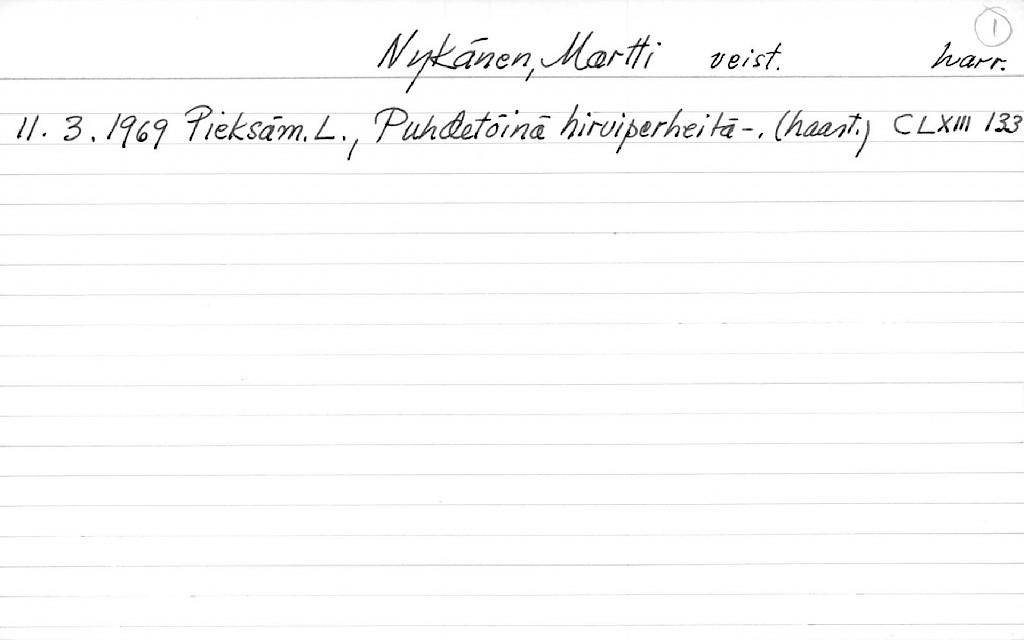 1
Nykänen, Martti veist. harr.
11. 3. 1969 Pieksäm. L., Puhdetöinä hirviperheitä-. (haast.) CLXIII 133